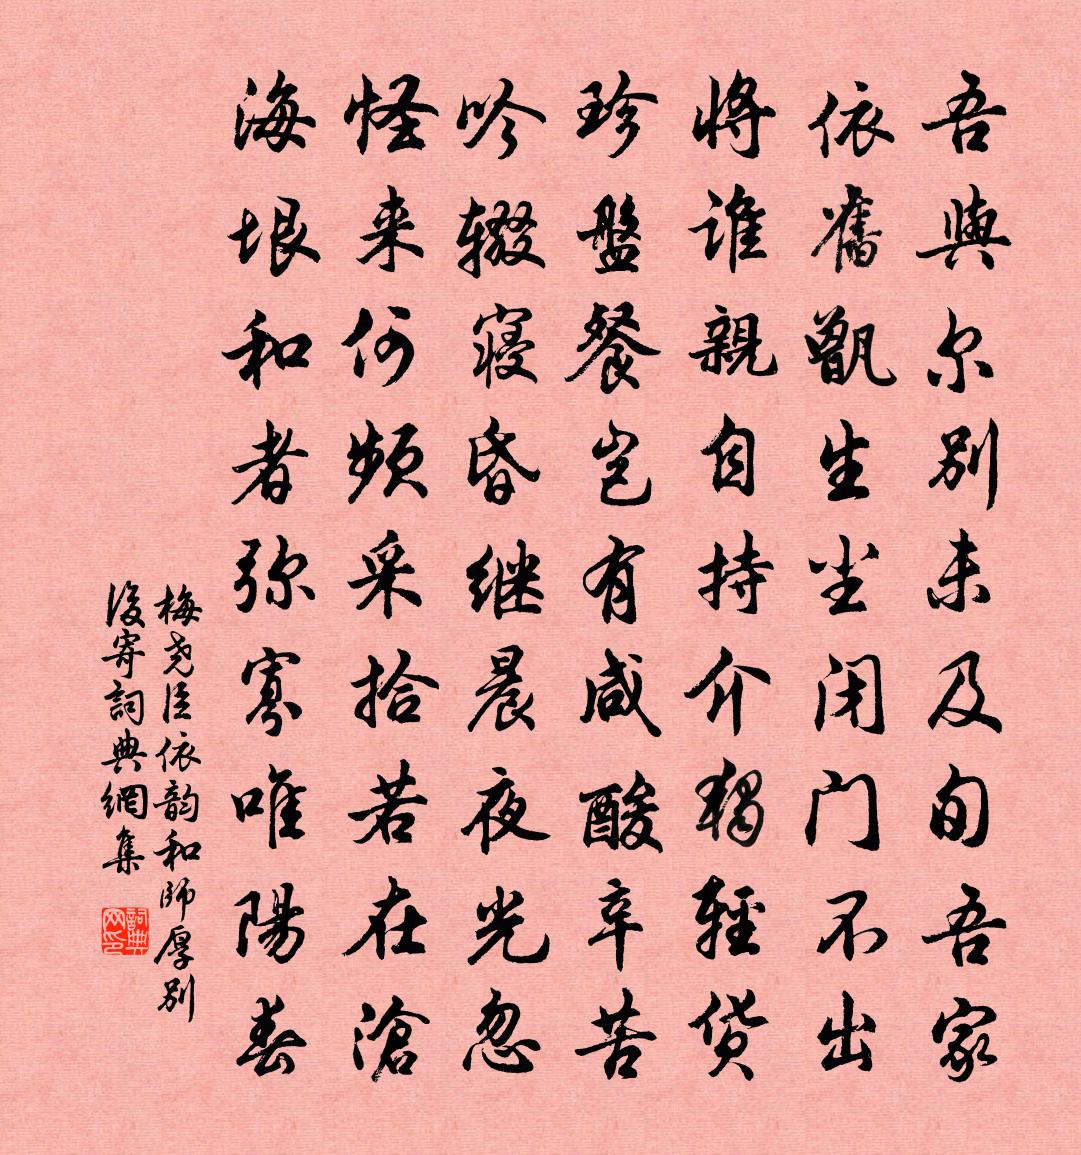 吾與尔别未及旬吾家
依舊甑生尘闭门不出
将谁親自持介獨輕货
珍盤餐岂有咸酸辛苦
吟辍寝昏继晨夜光忽
怪来何频采拾若在滄
海垠和者弥寡唯陽春
梅尧臣依韵和师厚别
後寄詞典網集
詞典网印